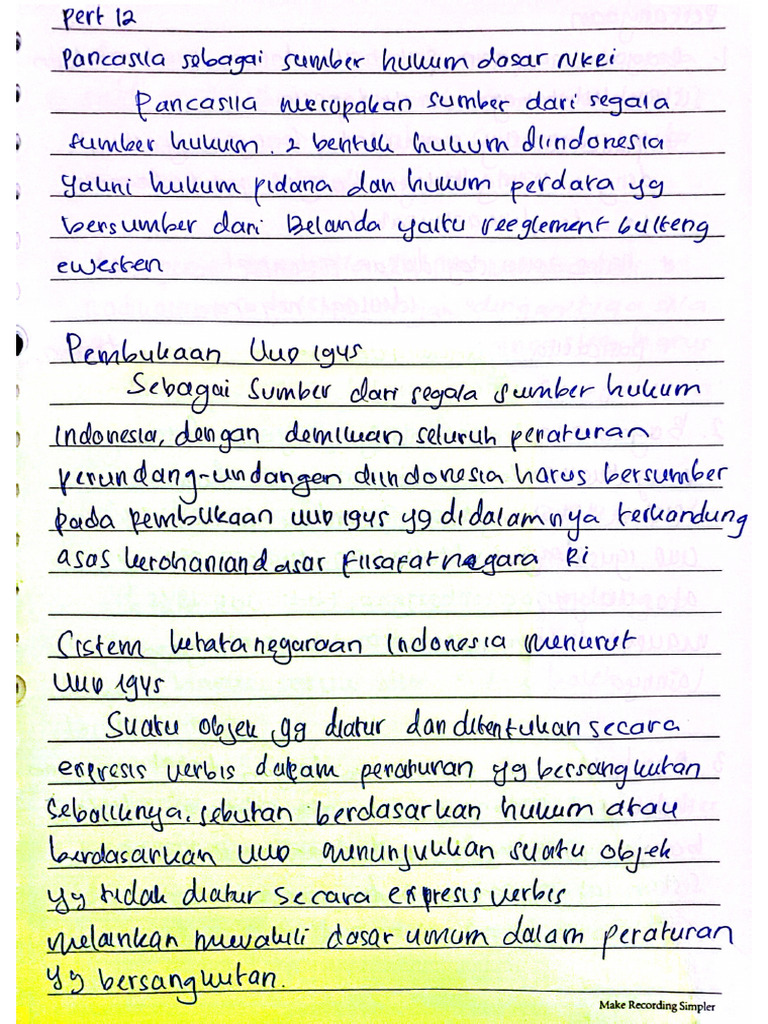 Pert 12
Pancasila sebagai sumber hukum dasar NKRI
Pancasila merupakan sumber dari segala
sumber hukum. 2 bentuk hukum diindonesia
yakni hukum pidana dan hukum perdata yg
bersumber dari Belanda yaitu reeglement bulteng
ewesten
Pembukaan UUD 1945
Sebagai sumber dari segala sumber hukum
Indonesia, dengan demikian seluruh peraturan
perundang-undangan diindonesia harus bersumber
pada pembukaan UUD 1945 yg didalamnya terkandung
asas kerohanian dasar filsafat negara RI
Cistem ketatanegaraan Indonesia menurut
UUD 1945
Suatu objek yg diatur dan ditentukan secara
expresis verbis dalam peraturan yg bersangkutan
Sebaliknya. sebutan berdasarkan hukum atau
berdasarkan UUD menunjukkan suatu objek
yg tidak diatur secara expresis verbis
melainkan mewakili dasar umum dalam peraturan
yg bersangkutan.
Make Recording Simpler